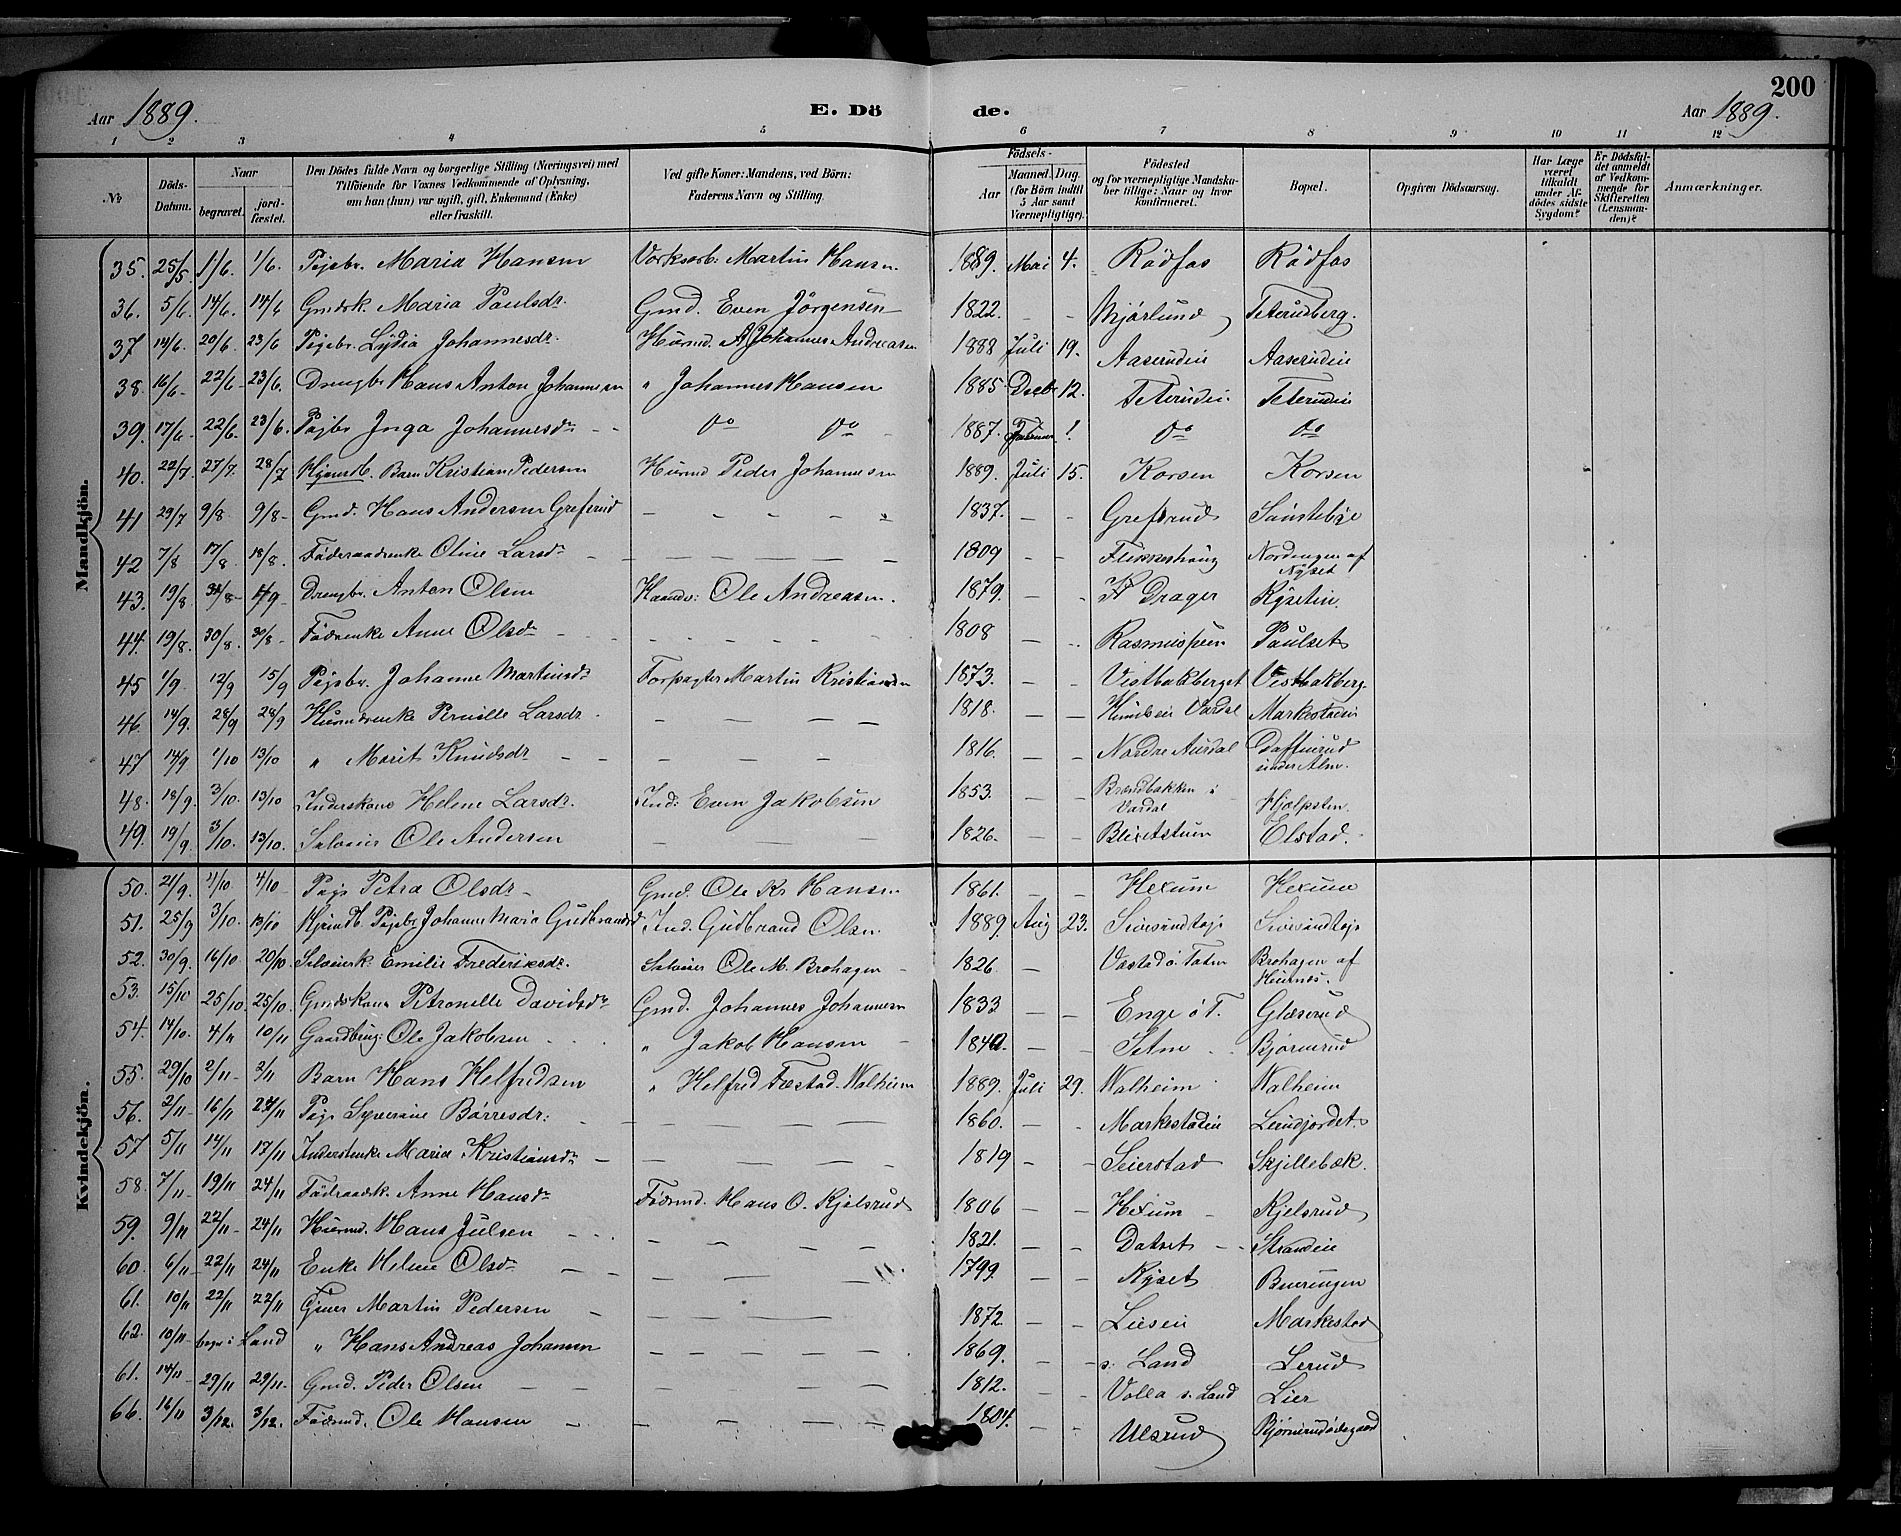 200
Aar 1889. E. Dö de. Aar 1889.
1 2 3 4 5 6 7 8 9 10 11 12
No Döds-Datum. Naar begravet. jord-fæstet. Den Dödes fulde Navn og borgerlige Stilling (Næringsvei) med Tilföiende for Voxnes Vedkommende af Oplysning, om han (hun) var ugift, gift, Enkemand (Enke) eller fraskilt. Ved gifte Koner: Mandens, ved Börn: Faderens Navn og Stilling. Födsels- Aar Maaned. Dag. (for Börn indtil 5 Aar samt Værnepligtige). Födested og for værnepligtige Mandskaber tillige: Naar og hvor konfirmeret. Bopæl. Opgiven Dödsaarsag. Har Læge været tilkaldt under Afdödes sidste Sygdom? Er Dödsfaldet anmeldt af Vedkommende for Skifteretten (Lensmanden)? Anmærkninger.
Mandkjön.
35. 25/5 1/6. 1/6. Pigebr. Maria Hansen Martin Hansen 1889. Mai 4. Rødfos Rødfos
36. 5/6. 14/6. 14/6 Gmdsk. Maria Paulsdr. Gmd. Even Jörgensen 1822. - - Mjørlund Teterudberg.
37 14/6. 20/6. 23/6 Pigebr. Lydia Johannesdr. Huusmd. Johannes Andreasen 1888 Juli 19. Aaserudeie Aaserudeie
38. 16/6- 22/6- 23/6. Drengbr Hans Anton Johannesen " Johannes Hansen 1885. Decb 12. Teterudei Teterudeie
39. 17/6 22/6. 23/6. Pigbr Inga Johannesdr - - Do Do 1887. ! Do Do
40. 22/7. 27/7. 28/7 Hjemdb. Barn Kristian Pedersen Huusmd Peder Johannesen 1889. Juli 15. Korsen Korsen
41 29/7 9/8. 9/8- Gmd. Hans Andersen Grefsrud - - - - 1837. - - Grefsrud
42 7/8 17/8. 18/8. Föderaadsenke Oline Larsdr - - - - 1809 - - Flikkeshaug Nordengen af Nyset
43. 19/8. 31/8- 1/9- Drengbr. Anton Olsen Ole Andreasen. 1879. - - Drager Rysetin.
44. 19/8. 30/8. 30/8- Födrenke Anne Olsdr - - - - 1808 - - Paulset
45 1/9. 12/9 15/9 Pigebr. Johanne Martinsdr Forpagter Martin Kristiansen 1873. - - Vestbakberget Vestbakberg.
46. 14/9. 28/9 28/9 Huusmdsenke Pernille Larsdr. - - - - 1818. - - Vardal Markestadei
47 14/9 1/10 13/10 " Marit Knudsdr - - - - 1816. - - Nordre Aurdal under Alm.
48. 18/9. 3/10. 13/10 Inderskone Helene Larsdr. Ind: Even Jakobsen 1853. - - Brændbakken i Vardal Hjælpsten.
49. 19/9. 3/10. 13/10. Selveier Ole Andersen - - - 1826. - - Elstad.
Kvindekjön.
50. 21/9. 4/10 4/10- Pige Petra Olsdr - Gmd. Ole Kr Hansen 1861. - - Hexum Hexum
51. 25/9 3/10. 13/10 Hjemdb. Pigebr Johanne Maria Gudbrandsd Ind. Gudbrand Olsen 1889. Aug 23. Sivesindhøje Sivesindhøje
52. 30/9. 16/10. 20/10. Selveierk. Emilie Frederiksdr. Selveier Ole M. Brohagen - 1826. - Brohagen af
53. 15/10 25/10. 25/10. Gmdskone Petronelle Davidsdr Gmd. Johannes Johannesen 1833 - - Enge ø T. Glæserud
54. 14/10. 4/11 10/11 Gaardbrug: Ole Jakobsen - - - " Jakob Hansen - 1840. - - Bjørnerud
55. 29/10 2/11- 2/11 Barn Hans Helfredsen " Helfred Fæstad-Walheim 1889. Juli 29. Walheim Walheim
56. 2/11- 16/11 24/11 Pige Syverine Børresdr: - - - - 1860. - - Markestadeie
57 5/11 14/11 17/11 Indersenke Maria Kristiansdr - - - - 1819 - - Seierstad Skjellebæk.
58. 7/11- 19/11 24/11 Födraadsk. Anne Hansdr Födsmd. Hans O. Kjelsrud 1806 - - Hexum - Kjelsrud
59. 9/11 22/11- 24/11 Huusmd. Hans Julsen - - - - 1821. - - Strandeie
60. 6/11- 22/11 24/11 Enke Helene Olsdr - - - - 1799. - - Ryset
61. 10/11 22/11 22/11 Tjener Martin Pedersen - - - - 1872. - - Markestad
62. 10/11- begr: i Land " Hans Andreas Johansen - - - - 1869. - - s. Land Lerud
61. 14/11 29/11 29/11. Gmd. Peder Olsen - - - - 1812. - - Volla s. Land Lier
66. 16/11 3/12. 3/12. Födsmd. Ole Hansen - - - - 1804. - - Ulsrud Bjørnerudødegaard